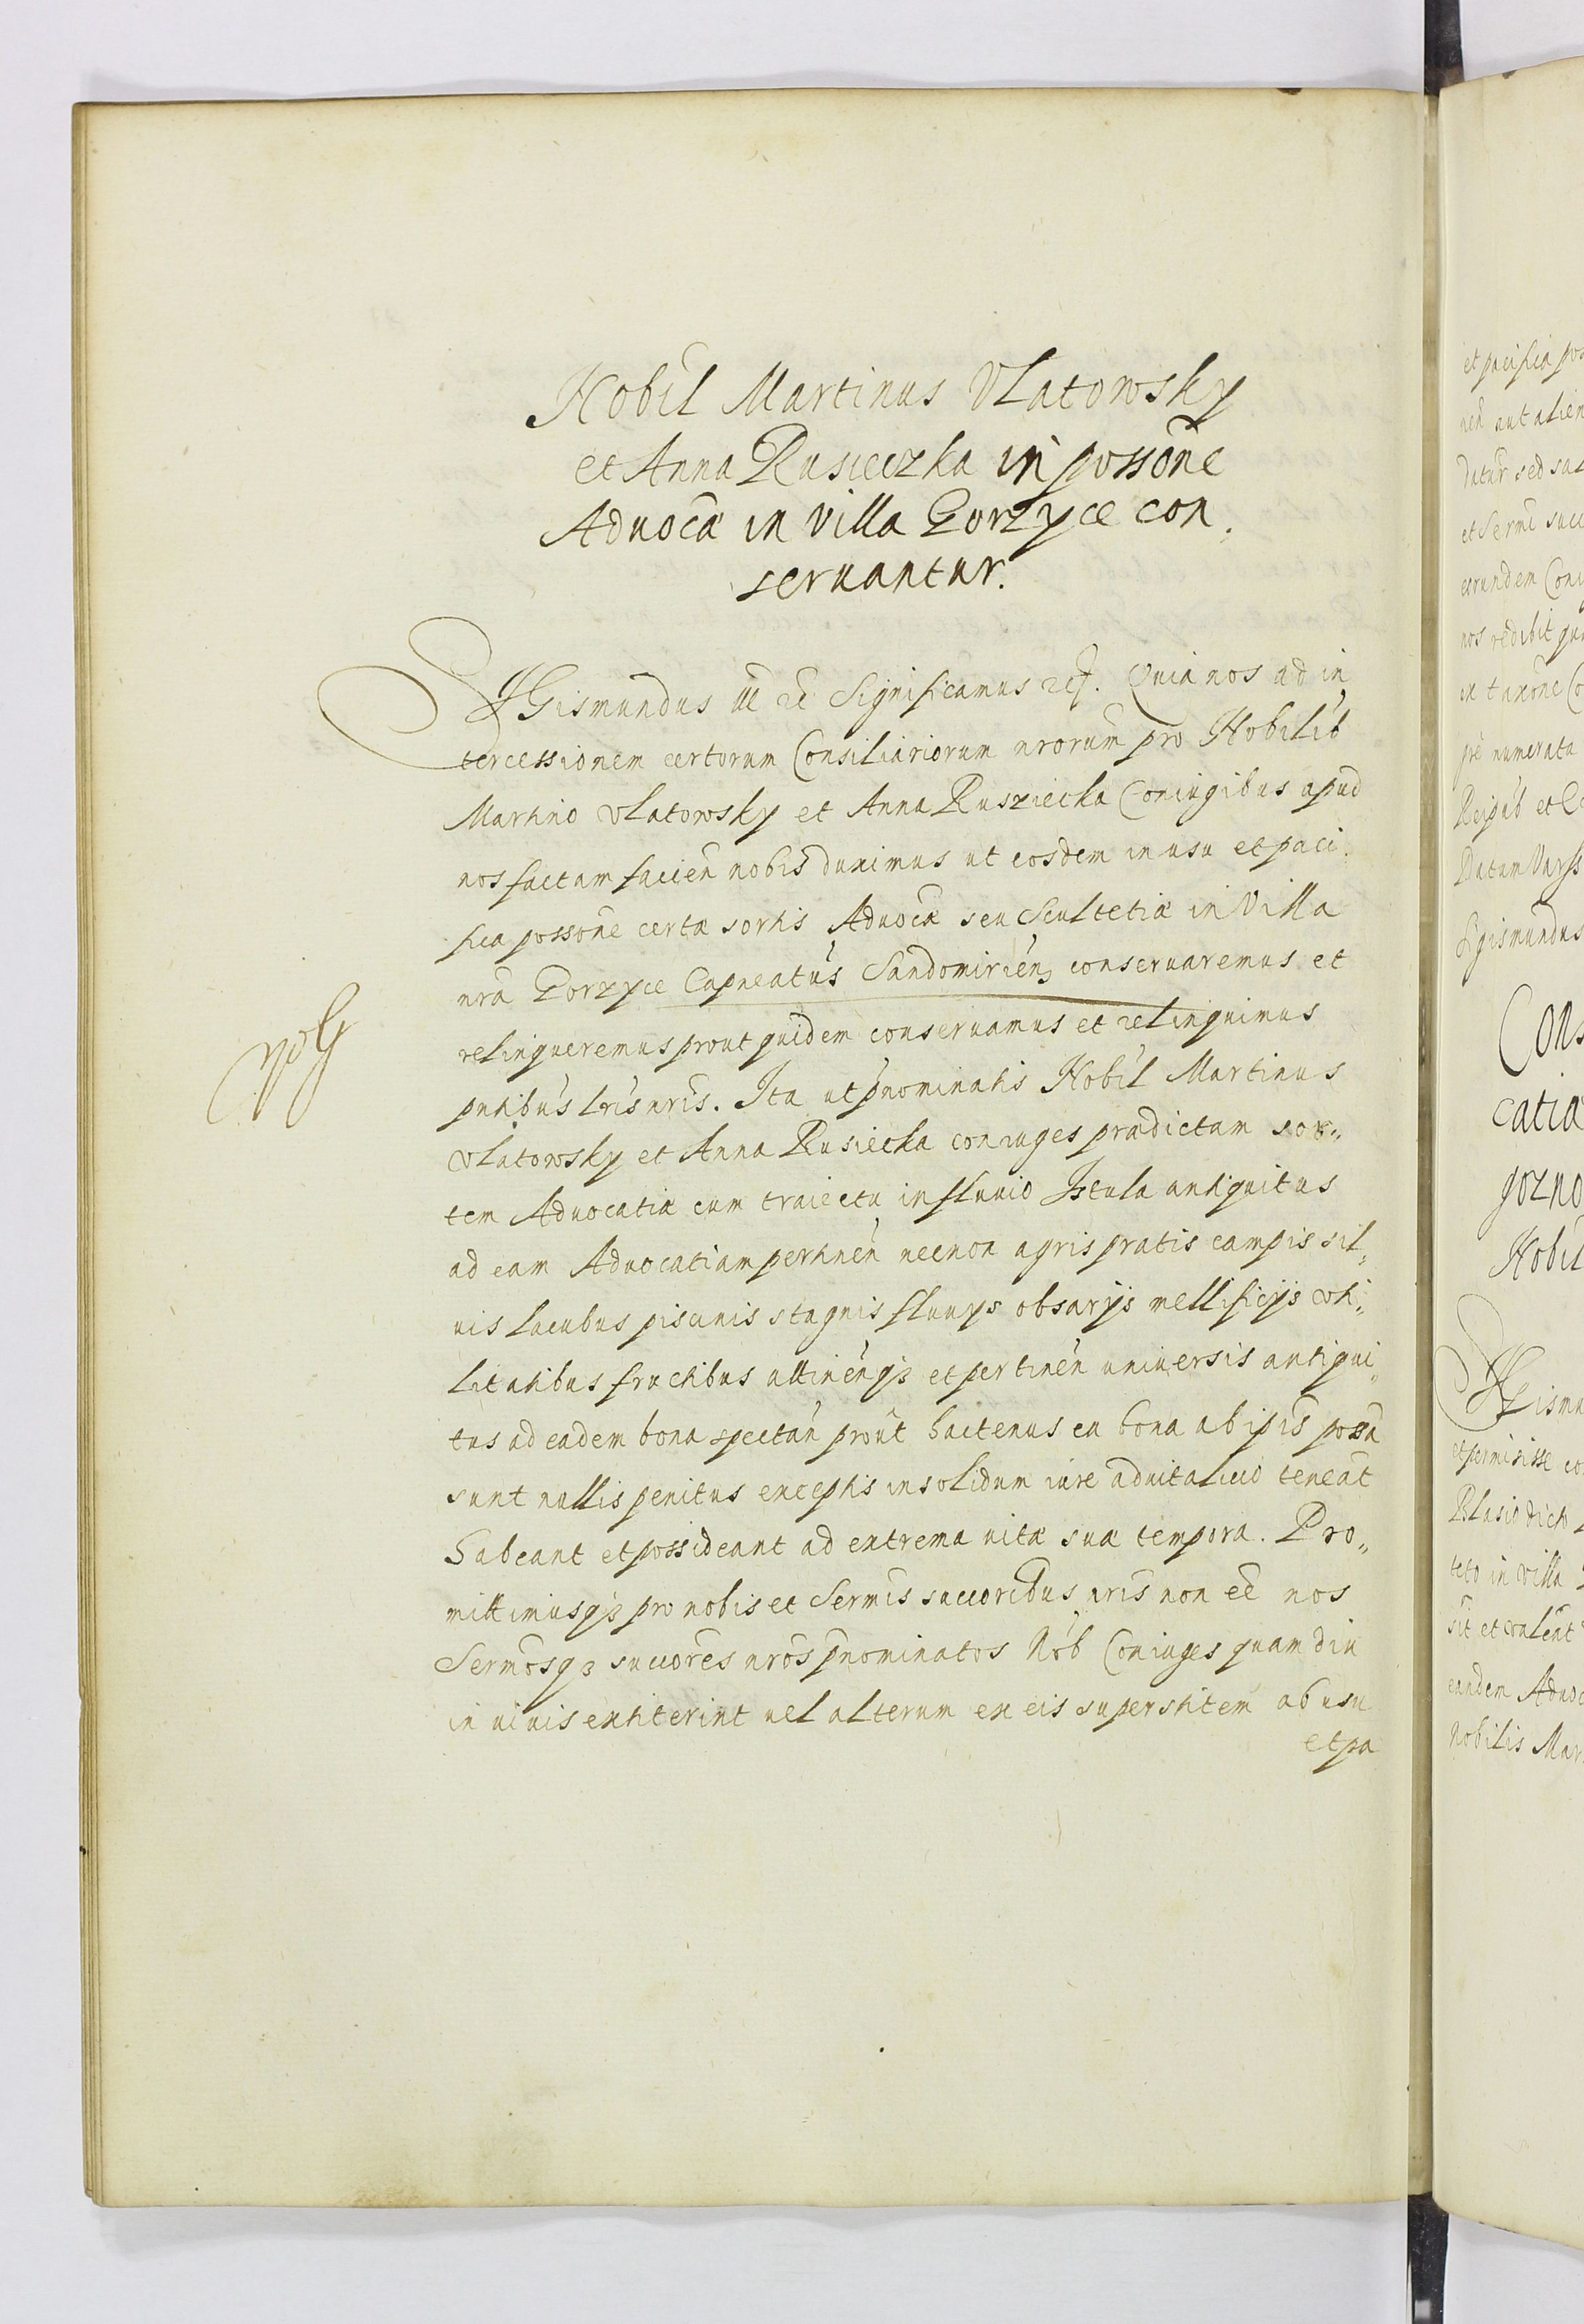 Nobil Martinus Vlatowsky
et Anna Rusieczka in possoñe
Aduocã in villa Gorzyce con
seruantur.
SIGismundus &c. Significamus &c. Quia nos ad in
tercessionem certorum Consiliariorum nrorum pro Nobilib
Martino Vlatowsky et Anna Rusziecka Coniugibus apud
nos factam facien nobis duximus ut eosdem in usu et paci
fica possoñe certæ sortis Aduocæ seu Scultetiæ in Villa
nra Gorzyce Capneatus Sandomirien conseruaremus et
relinqueremus prout quidem conseruamus et relinquimus
pntibus lris nris. Ita ut pnominatis Nobil Martinus
Vlatowsky et Anna Rusiecka coniuges prædictam sor„
tem Aduocatiæ cum traiectu in fluuio Istula antiquitus
ad eam Aduocatiam pertinen necnon agris pratis campis sil„
uis lacubus piscinis stagnis fluuys obsarijs mellificijs vti„
litatibus fructibus attinengz et pertinen uniuersis antiqui„
tus ad eadem bona spectan prout hactenus ea bona ab ipis possa
sunt nullis penitus exceptis in solidum iure aduitalicio teneat
habeant et possideant ad extrema uitæ suæ tempora. Pro„
mittimusqz pro nobis et Sermis succoribus nris non eẽ nos
Sermosqz succores nros pnominatos Nob Coniuges quam diu
in uiuis extiterint uel alterum ex eis superstitem ab usu
et pa
et pacifica pos
nen aut alien
datur sed sal
et Sermi succ
eorundem Coni
nos redibit
ex taxone Co
pre numerata
Reipub et Co
Datum Varss
Sigismundus
Cons
catiæ
gozno
Nobil
Sigismu
et permisisse co
Blasio dicto
teto in villa
sit et valeat
eandem Aduoc
Nobilis Mar